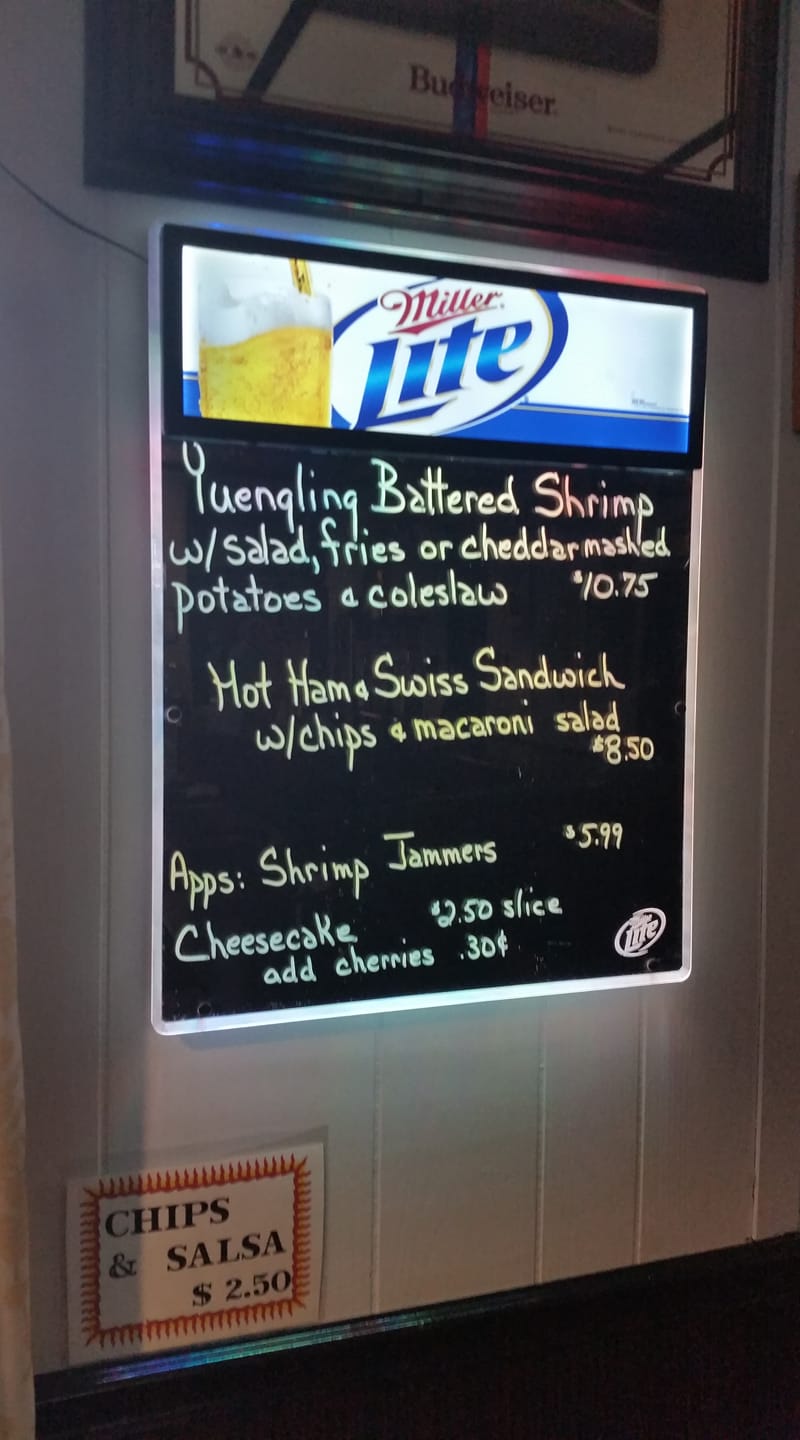 Budweiser
Miller
Lite
Yuengling Battered Shrimp
w/salad, fries or cheddar mashed
potatoes & coleslaw $10.75
Hot Ham & Swiss Sandwich
w/chips & macaroni salad
$8.50
Apps: Shrimp Jammers $5.99
Cheesecake $2.50 slice
add cherries .30¢
Miller
Lite
CHIPS
& SALSA
$ 2.50